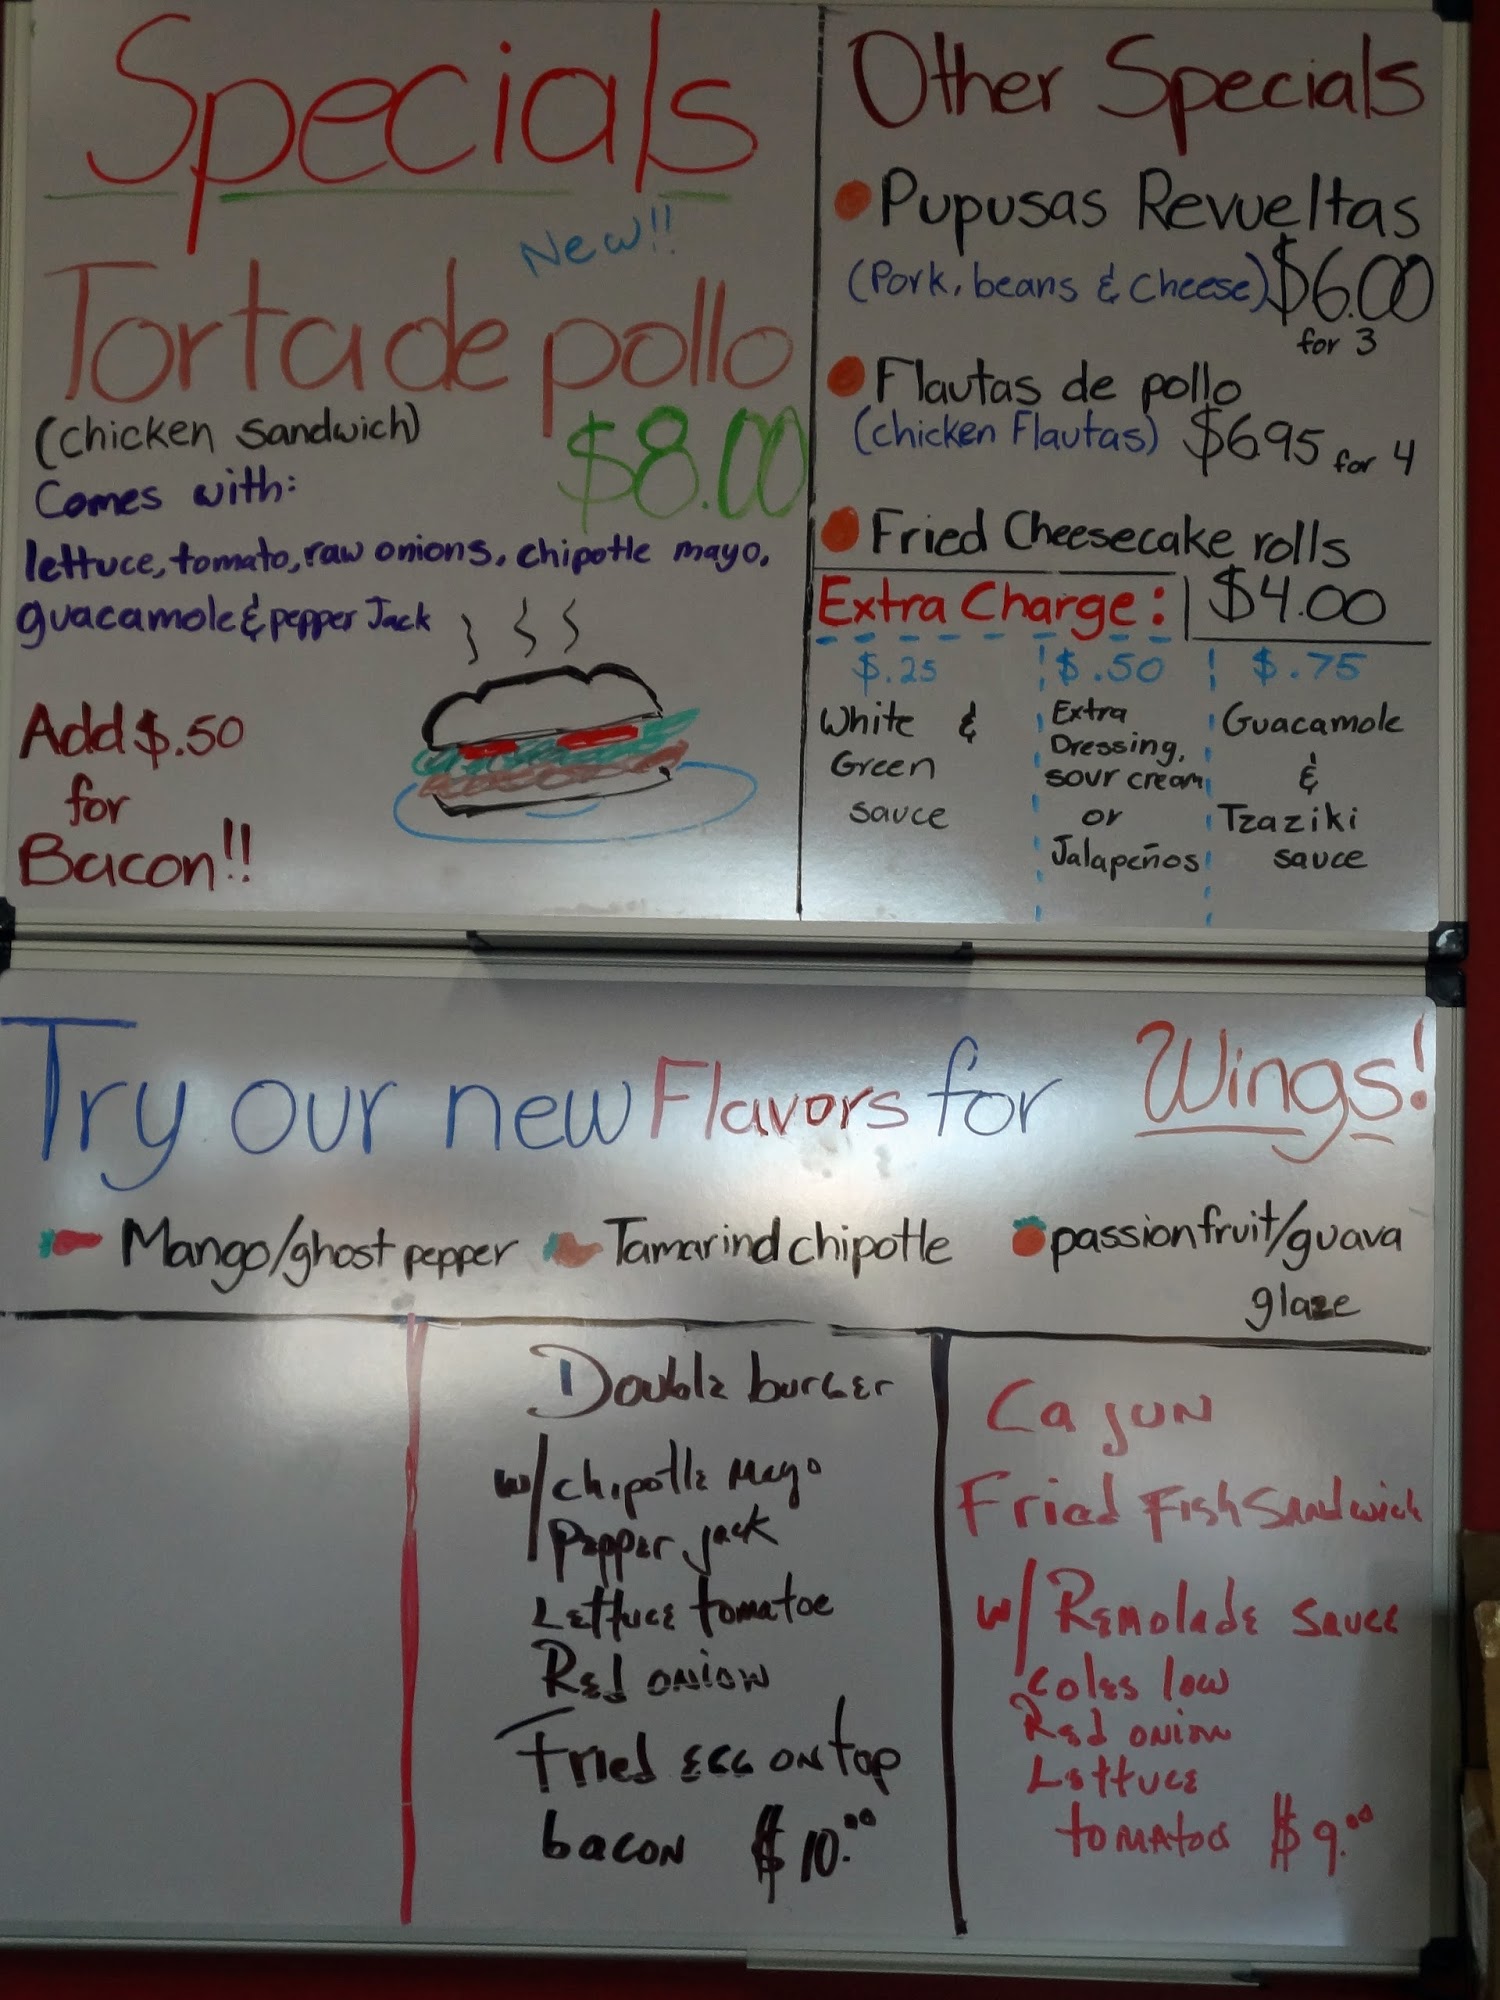 Specials
New!!
Torta de pollo
(chicken sandwich)
$8.00
Comes with:
lettuce, tomato, raw onions, chipotle mayo,
guacamole & pepper Jack
Add $.50
for
Bacon!!
Other Specials
Pupusas Revueltas
(Pork, beans & Cheese) $6.00
for 3
Flautas de pollo
(chicken Flautas) $6.95 for 4
Fried Cheesecake rolls
$4.00
Extra Charge:
$.25
White &
Green
sauce
$.50
Extra
Dressing,
sour cream
or
Jalapeños
$.75
Guacamole
&
Tzaziki
sauce
Try our new Flavors for Wings!
Mango/ghost pepper
Tamarind chipotle
passionfruit/guava
glaze
Double burger
w/chipotle mayo
pepper jack
Lettuce tomatoe
Red onion
Fried egg on top
bacon $10.00
Cajun
Fried Fish Sandwich
w/ Remolade sauce
coles low
Red onion
Lettuce
tomatoo $9.00